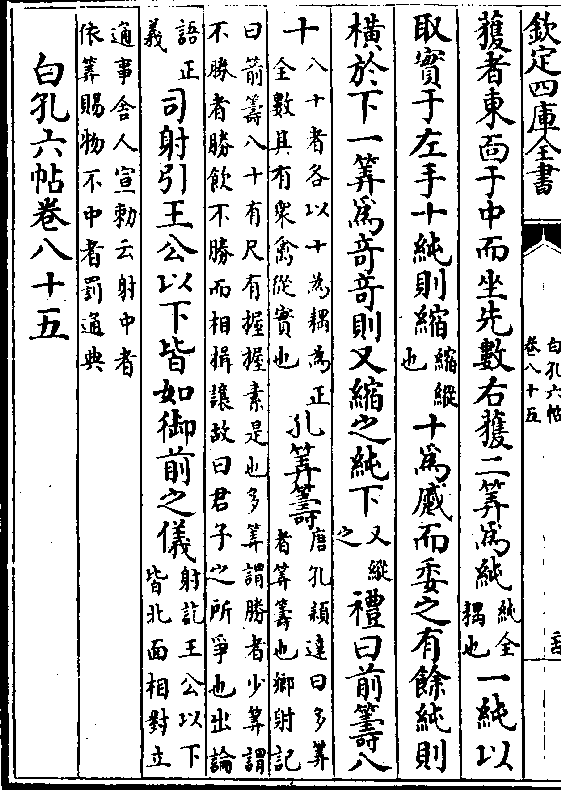 欽定四庫全書
白孔六帖
卷八十五
獲者東面于中而坐先數右獲二筭爲純純全
耦也一純以
取實于左手十純則縮縮縱
也十爲㢡而委之有餘純則
橫於下一筭爲竒竒則又縮之純下又縱
之禮曰前籌八
十八十者各以十為耦為正
全數具有衆禽從實也孔筭籌唐孔頴達曰多筭
者筭籌也鄉射記
曰箭籌八十有尺有握握素是也多筭謂勝者少筭謂
不勝者勝飲不勝而相揖讓故曰君子之所爭也出論
語正
義司射引王公以下皆如御前之儀射訖王公以下
皆北面相對立
通事舍人宣勑云射中者
依筭賜物不中者罰通典
白孔六帖卷八十五